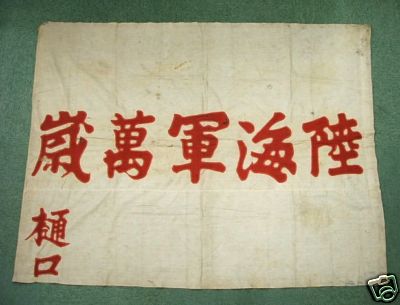 陸海軍萬歳
樋口